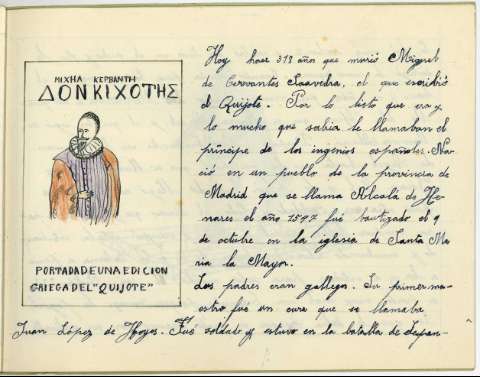 ΜΙΧΗΛ ΚΕΡΒΑΝΤΗ
ΔΟΝ ΚΙΧΟΤΗΣ
PORTADA DE UNA EDICION
GRIEGA DEL "QUIJOTE"
Hoy hace 313 años que murió Miguel
de Cervantes Saavedra, el que escribió
el Quijote. Por lo listo que era y
lo mucho que sabia le llamaban el
príncipe de los ingenios españoles. Na-
ció en un pueblo de la provincia de
Madrid que se llama Alcalá de He-
nares el año 1547 fué bautizado el 9
de octubre en la iglesia de Santa Ma
ria la Mayor.
Los padres eran gallegos. Su primer ma-
estro fué un cura que se llamaba
Juan López de Hoyos. Fué soldado y estuvo en la batalla de Lepan-